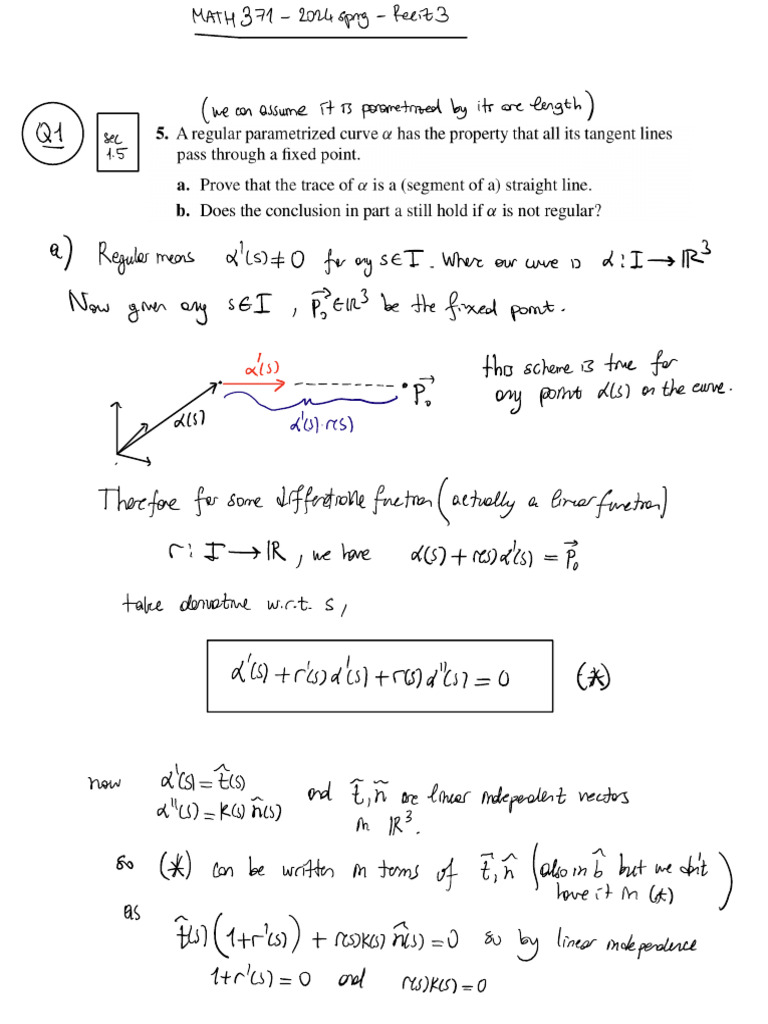 MATH 371 - 2024 sprg - Recit 3
(we can assume it is parametrized by its arc length)
Q1
sec 1.5
5. A regular parametrized curve α has the property that all its tangent lines
pass through a fixed point.
a. Prove that the trace of α is a (segment of a) straight line.
b. Does the conclusion in part a still hold if α is not regular?
a) Regular means α'(s) ≠ 0 for any s∈I. Where our curve is α : I → ℝ³
Now given any s∈I, P⃗₀∈ℝ³ be the fixed point.
α'(s)
this scheme is true for
any point α(s) on the curve.
P⃗₀
α(s)
α'(s)·r(s)
Therefore for some differentiable function (actually a linear function)
r : I → ℝ, we have α(s) + r(s)α'(s) = P⃗₀
take derivative w.r.t. s,
α'(s) + r'(s)α'(s) + r(s)α''(s) = 0 (*)
now α'(s) = t̂(s)
α''(s) = k(s) n̂(s)
and t̂, n̂ are linear independent vectors
in ℝ³.
so (*) can be written in terms of t̂, n̂ (also in b̂ but we dn't
have it in (*))
as
t̂(s)(1+r'(s)) + r(s)k(s) n̂(s) = 0 so by linear independence
1+r'(s) = 0 and r(s)k(s) = 0